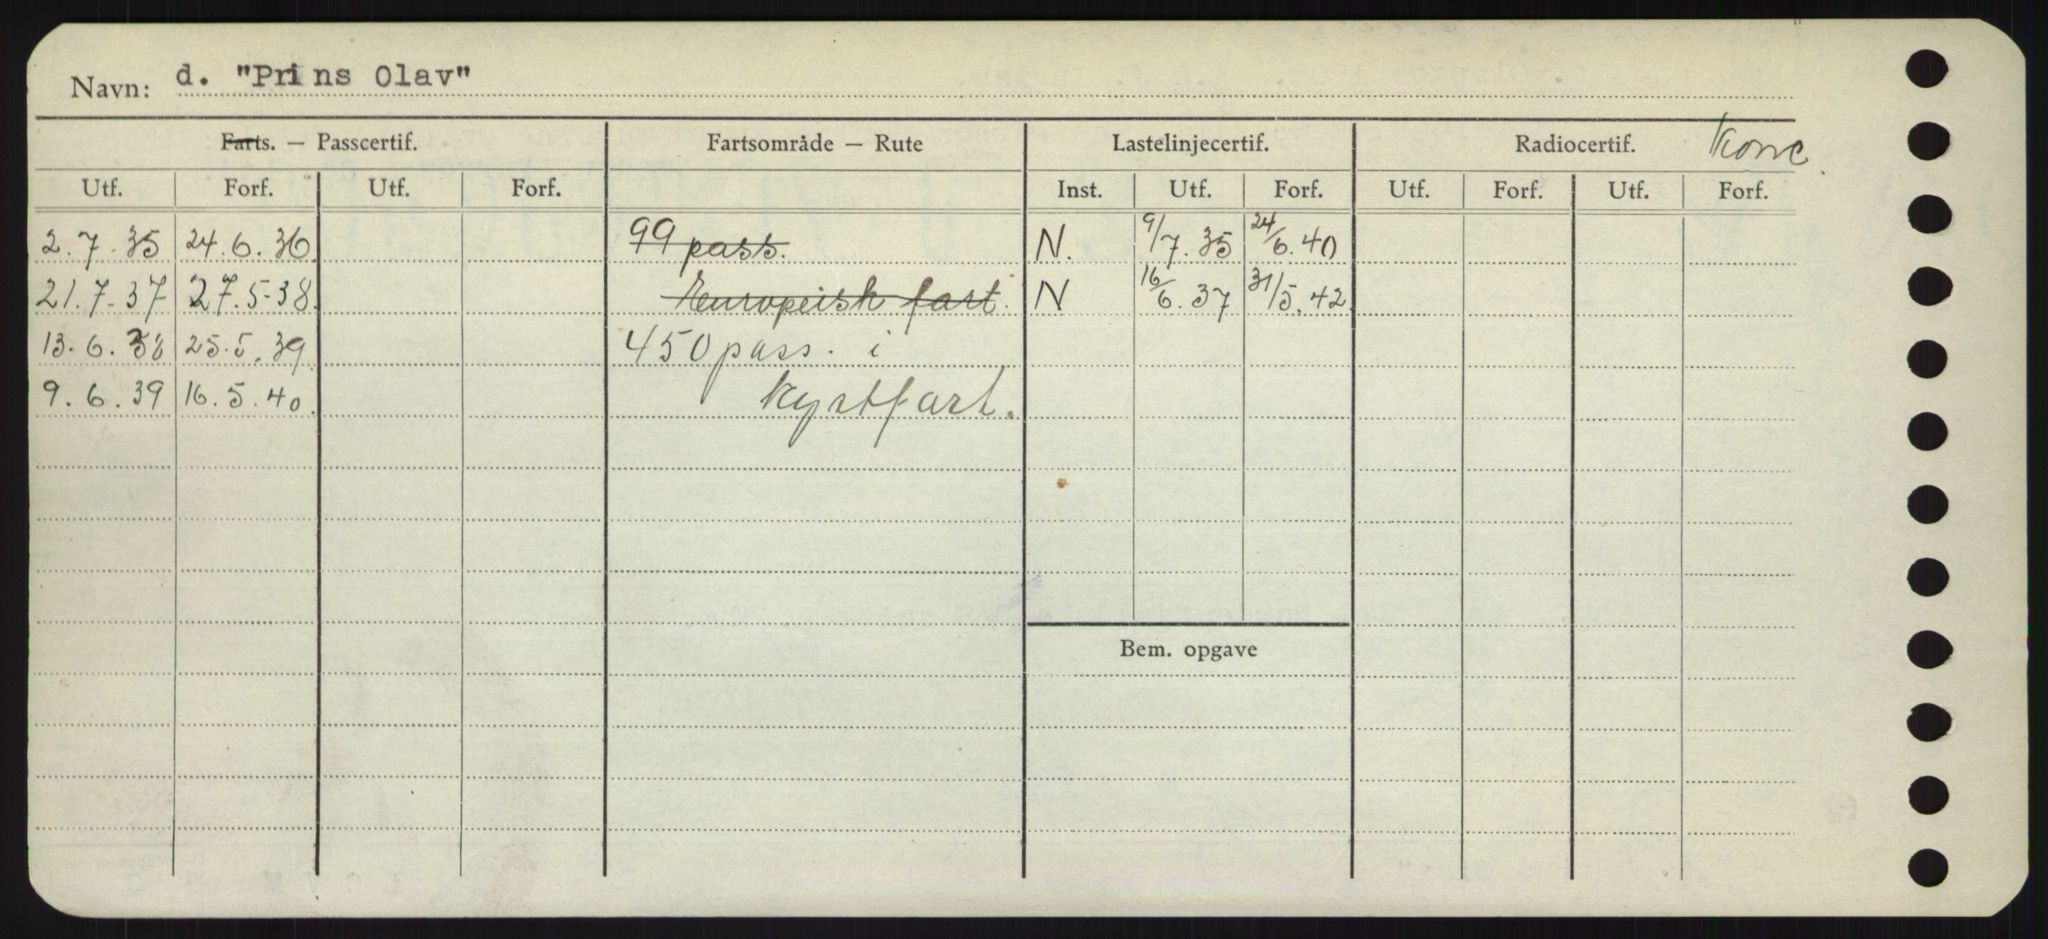 Navn: d. "Prins Olav"
Farts. — Passcertif. Fartsområde — Rute Lastelinjecertif. Radiocertif. Konc.
Utf. Forf. Utf. Forf. Inst. Utf. Forf. Utf. Forf. Utf. Forf.
2.7.35 24.6.36 99 pass. N. 9/7.35 24/6.40
21.7.37 27.5.38. Europeisk fart. N 16/6.37 31/5.42
13.6.38 25.5.39 450 pass. i
9.6.39 16.5.40. Kystfart.
Bem. opgave